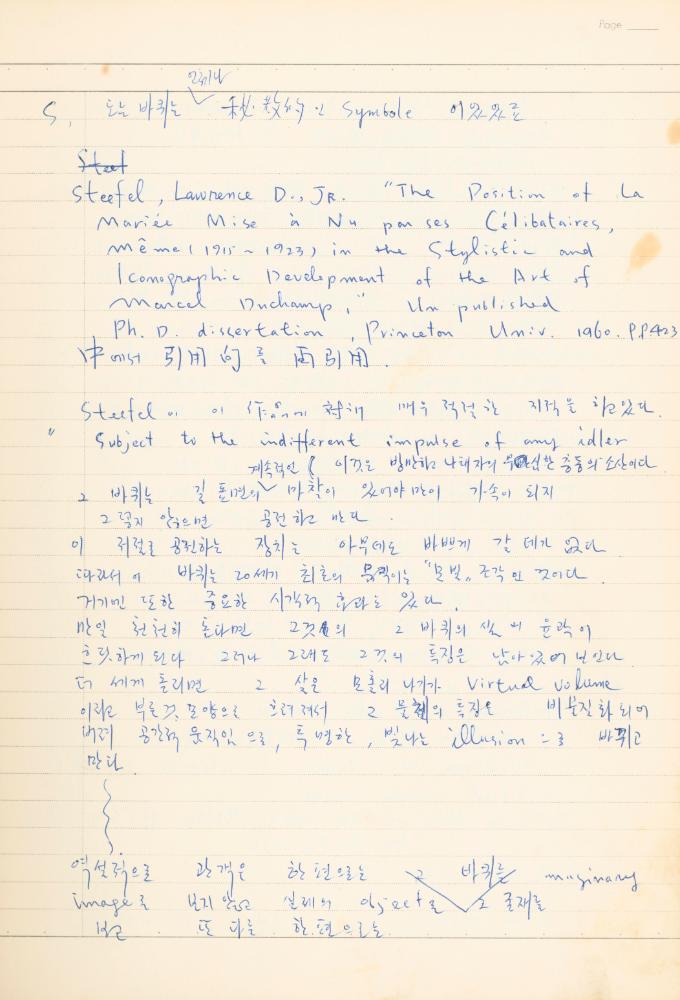 Page
언제나
S. 도는 바퀴는 秘敎的인 Symbole 이었었고
Steef
Steefel, Lawrence D., JR. "The Position of La
Mariée Mise à Nu par ses Célibataires,
même (1915~1923) in the Stylistic and
Iconographic Development of the Art of
Marcel Duchamp," Unpublished
Ph. D. dissertation, Princeton Univ. 1960. P.P.423
中에서 引用的를 再引用.
Steefel이 이 作品에 대해 매우 적절한 지적을 하고있다.
" Subject to the indifferent impulse of any idler
계속적인 ( 이것은 방만하고 나태자의 무관심한 충동의 소산이다
그 바퀴는 길 표면의 마찰이 있어야만이 가속이 되지
그렇지 않으면 공전하고 만다.
이 저절로 공전하는 장치는 아무데도 바쁘게 갈 데가 없다.
따라서 이 바퀴는 20세기 최초의 움직이는 "모빌" 조각인 것이다.
거기엔 또한 중요한 시각적 효과도 있다.
만일 천천히 돈다면 그것의 그 바퀴의 살의 윤곽이
흐릿하게 된다 그러나 그래도 그것의 특징은 남아있어 보인다
더 세게 돌리면 그 살은 모홀리 나기가 Virtual Volume
이라고 부른것 모양으로 흐려져서 그 물체의 특징은 비물질화되어
버려 공간적 움직임으로, 투명한, 빛나는 illusion으로 바뀌고
만다.
역설적으로 관객은 한편으로는 그 바퀴를 imaginary
image로 보지 않고 실제의 object로 그 존재를
보고 또 다른 한편으로는